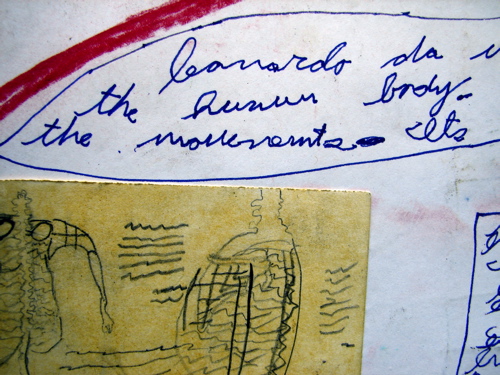 leonardo da
the human body.
the movements Its